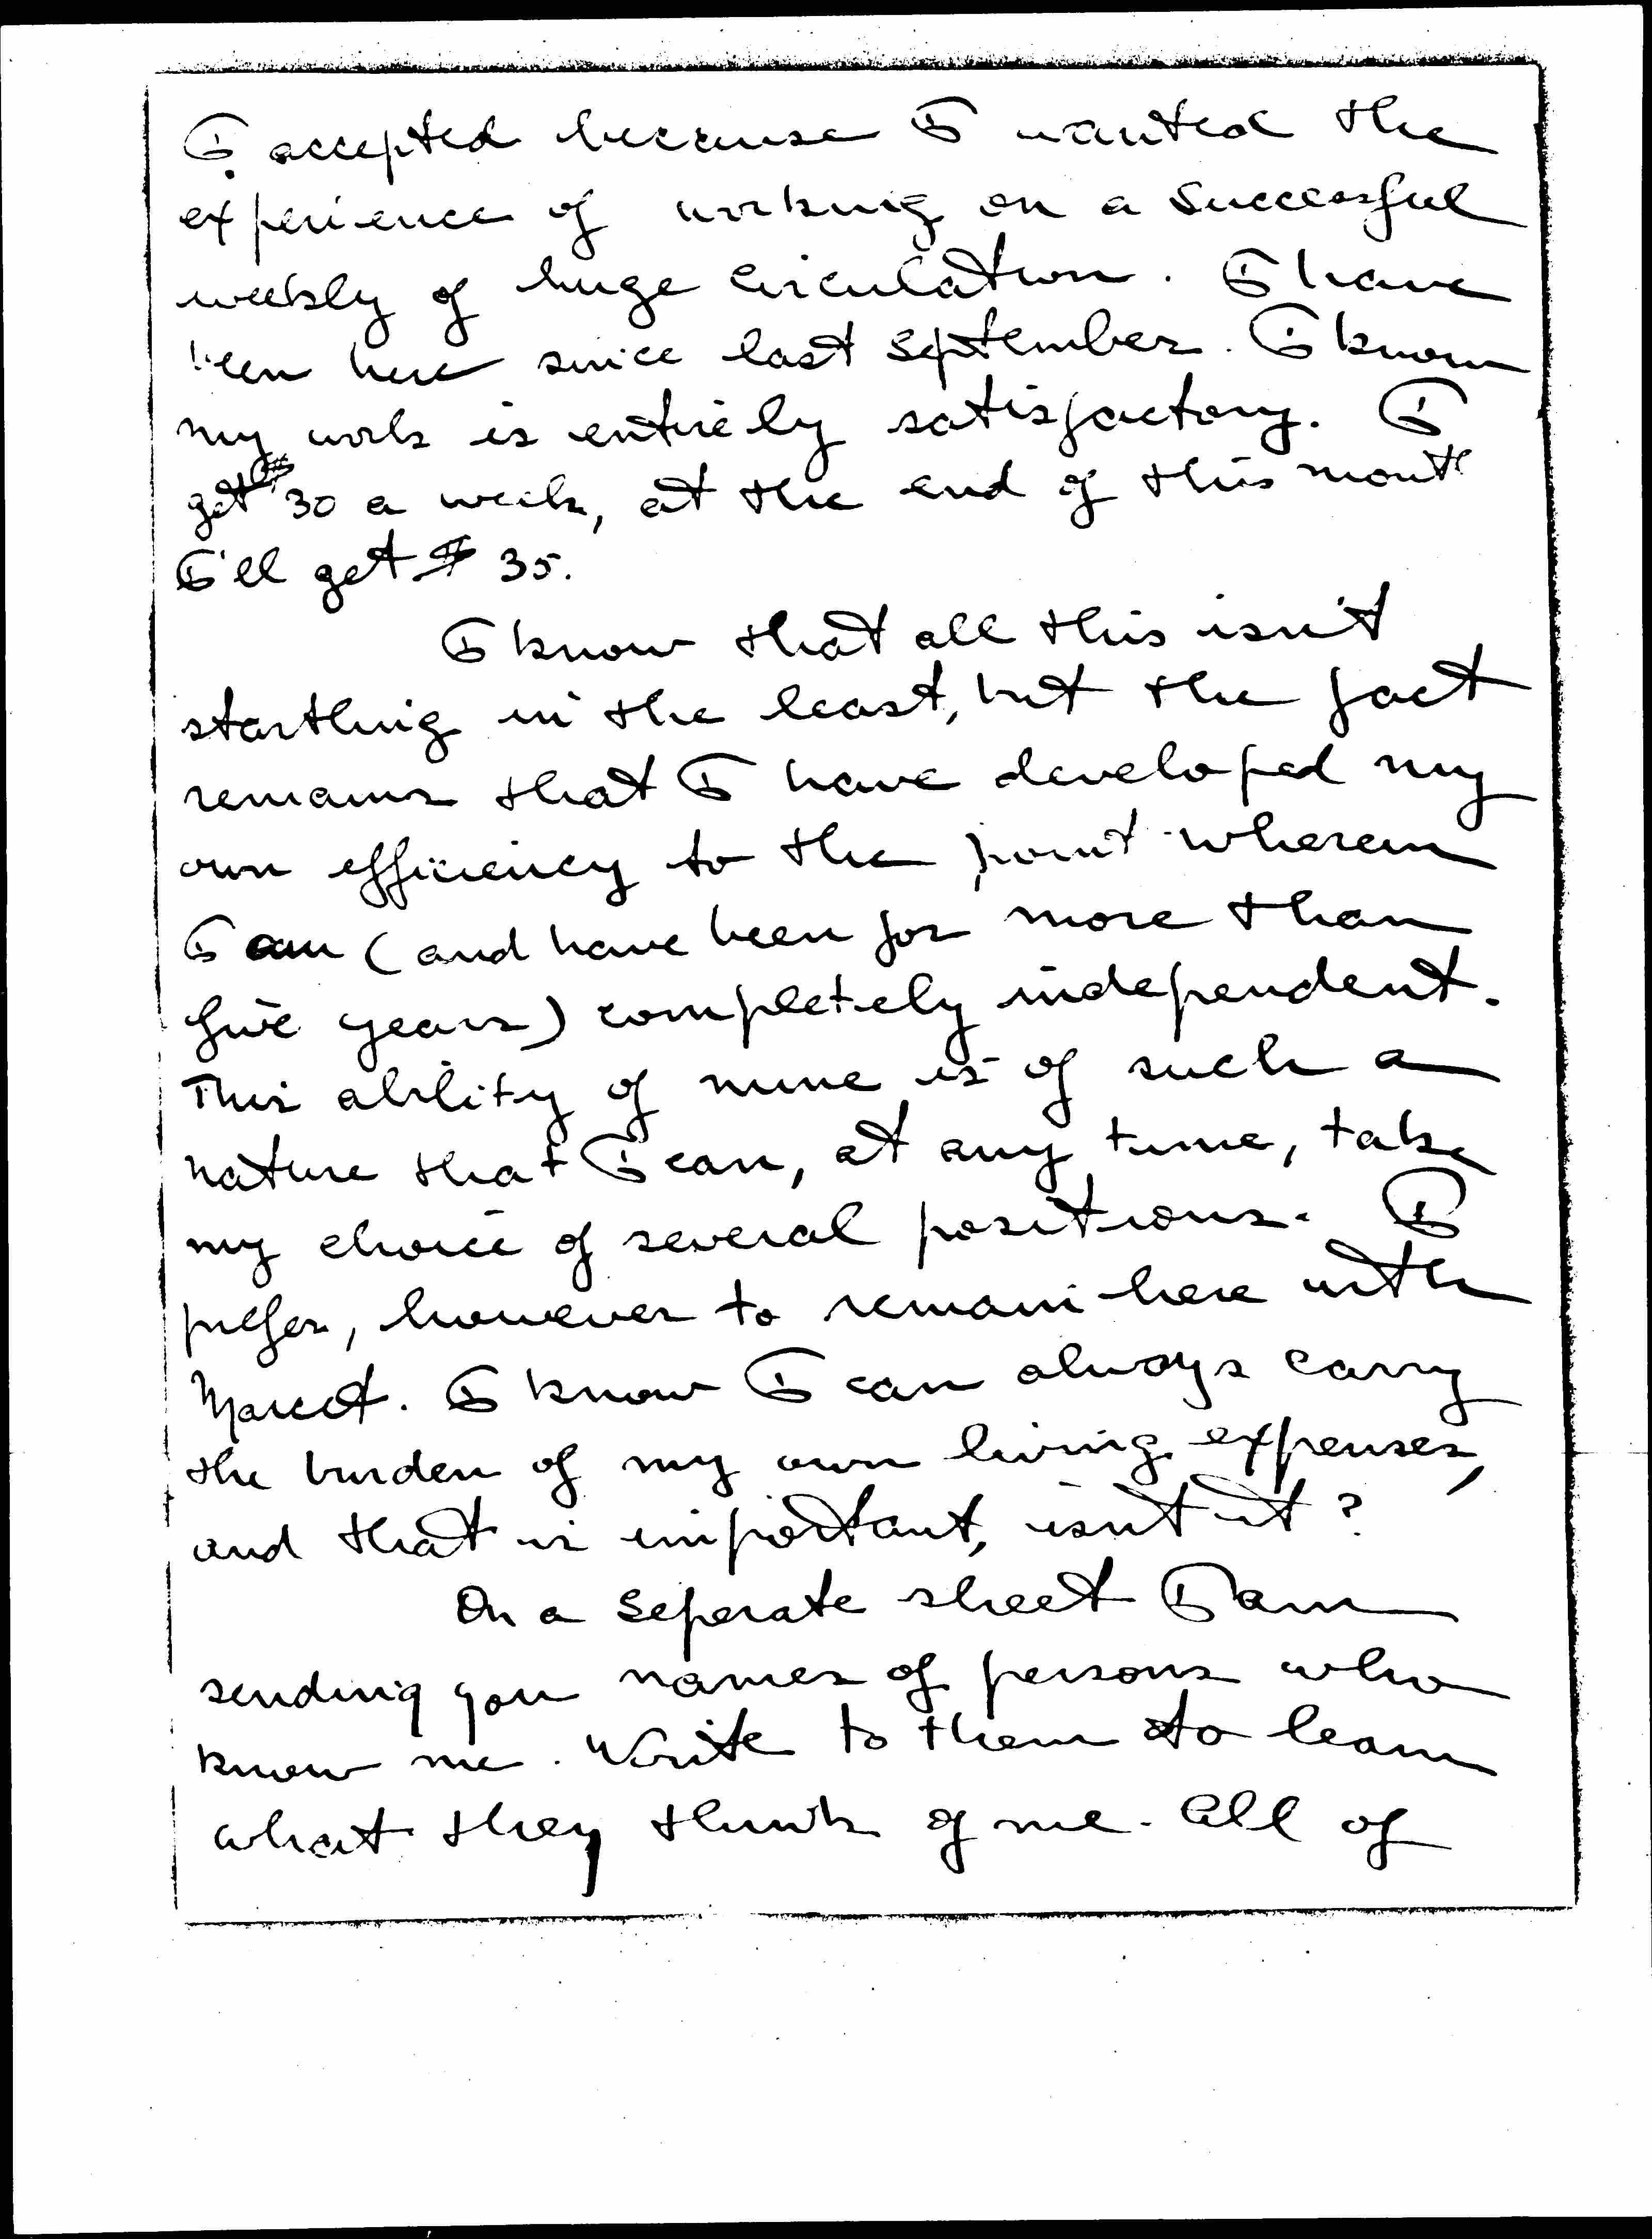 I accepted because I wanted the
experience of working on a successful
weekly of huge circulation. I have
been here since last September. I know
my work is entirely satisfactory. I
get $30 a week, at the end of this month
I'll get $35.
I know that all this isn't
startling in the least, but the fact
remains that I have developed my
own efficiency to the point wherein
I am (and have been for more than
five years) completely independent.
This ability of mine is of such a
nature that I can, at any time, take
my choice of several positions. I
prefer, however to remain here with
Marcet. I know I can always carry
the burden of my own living expenses,
and that is important, isn't it?
On a seperate sheet I am
sending you names of persons who
know me. Write to them to learn
what they think of me. All of